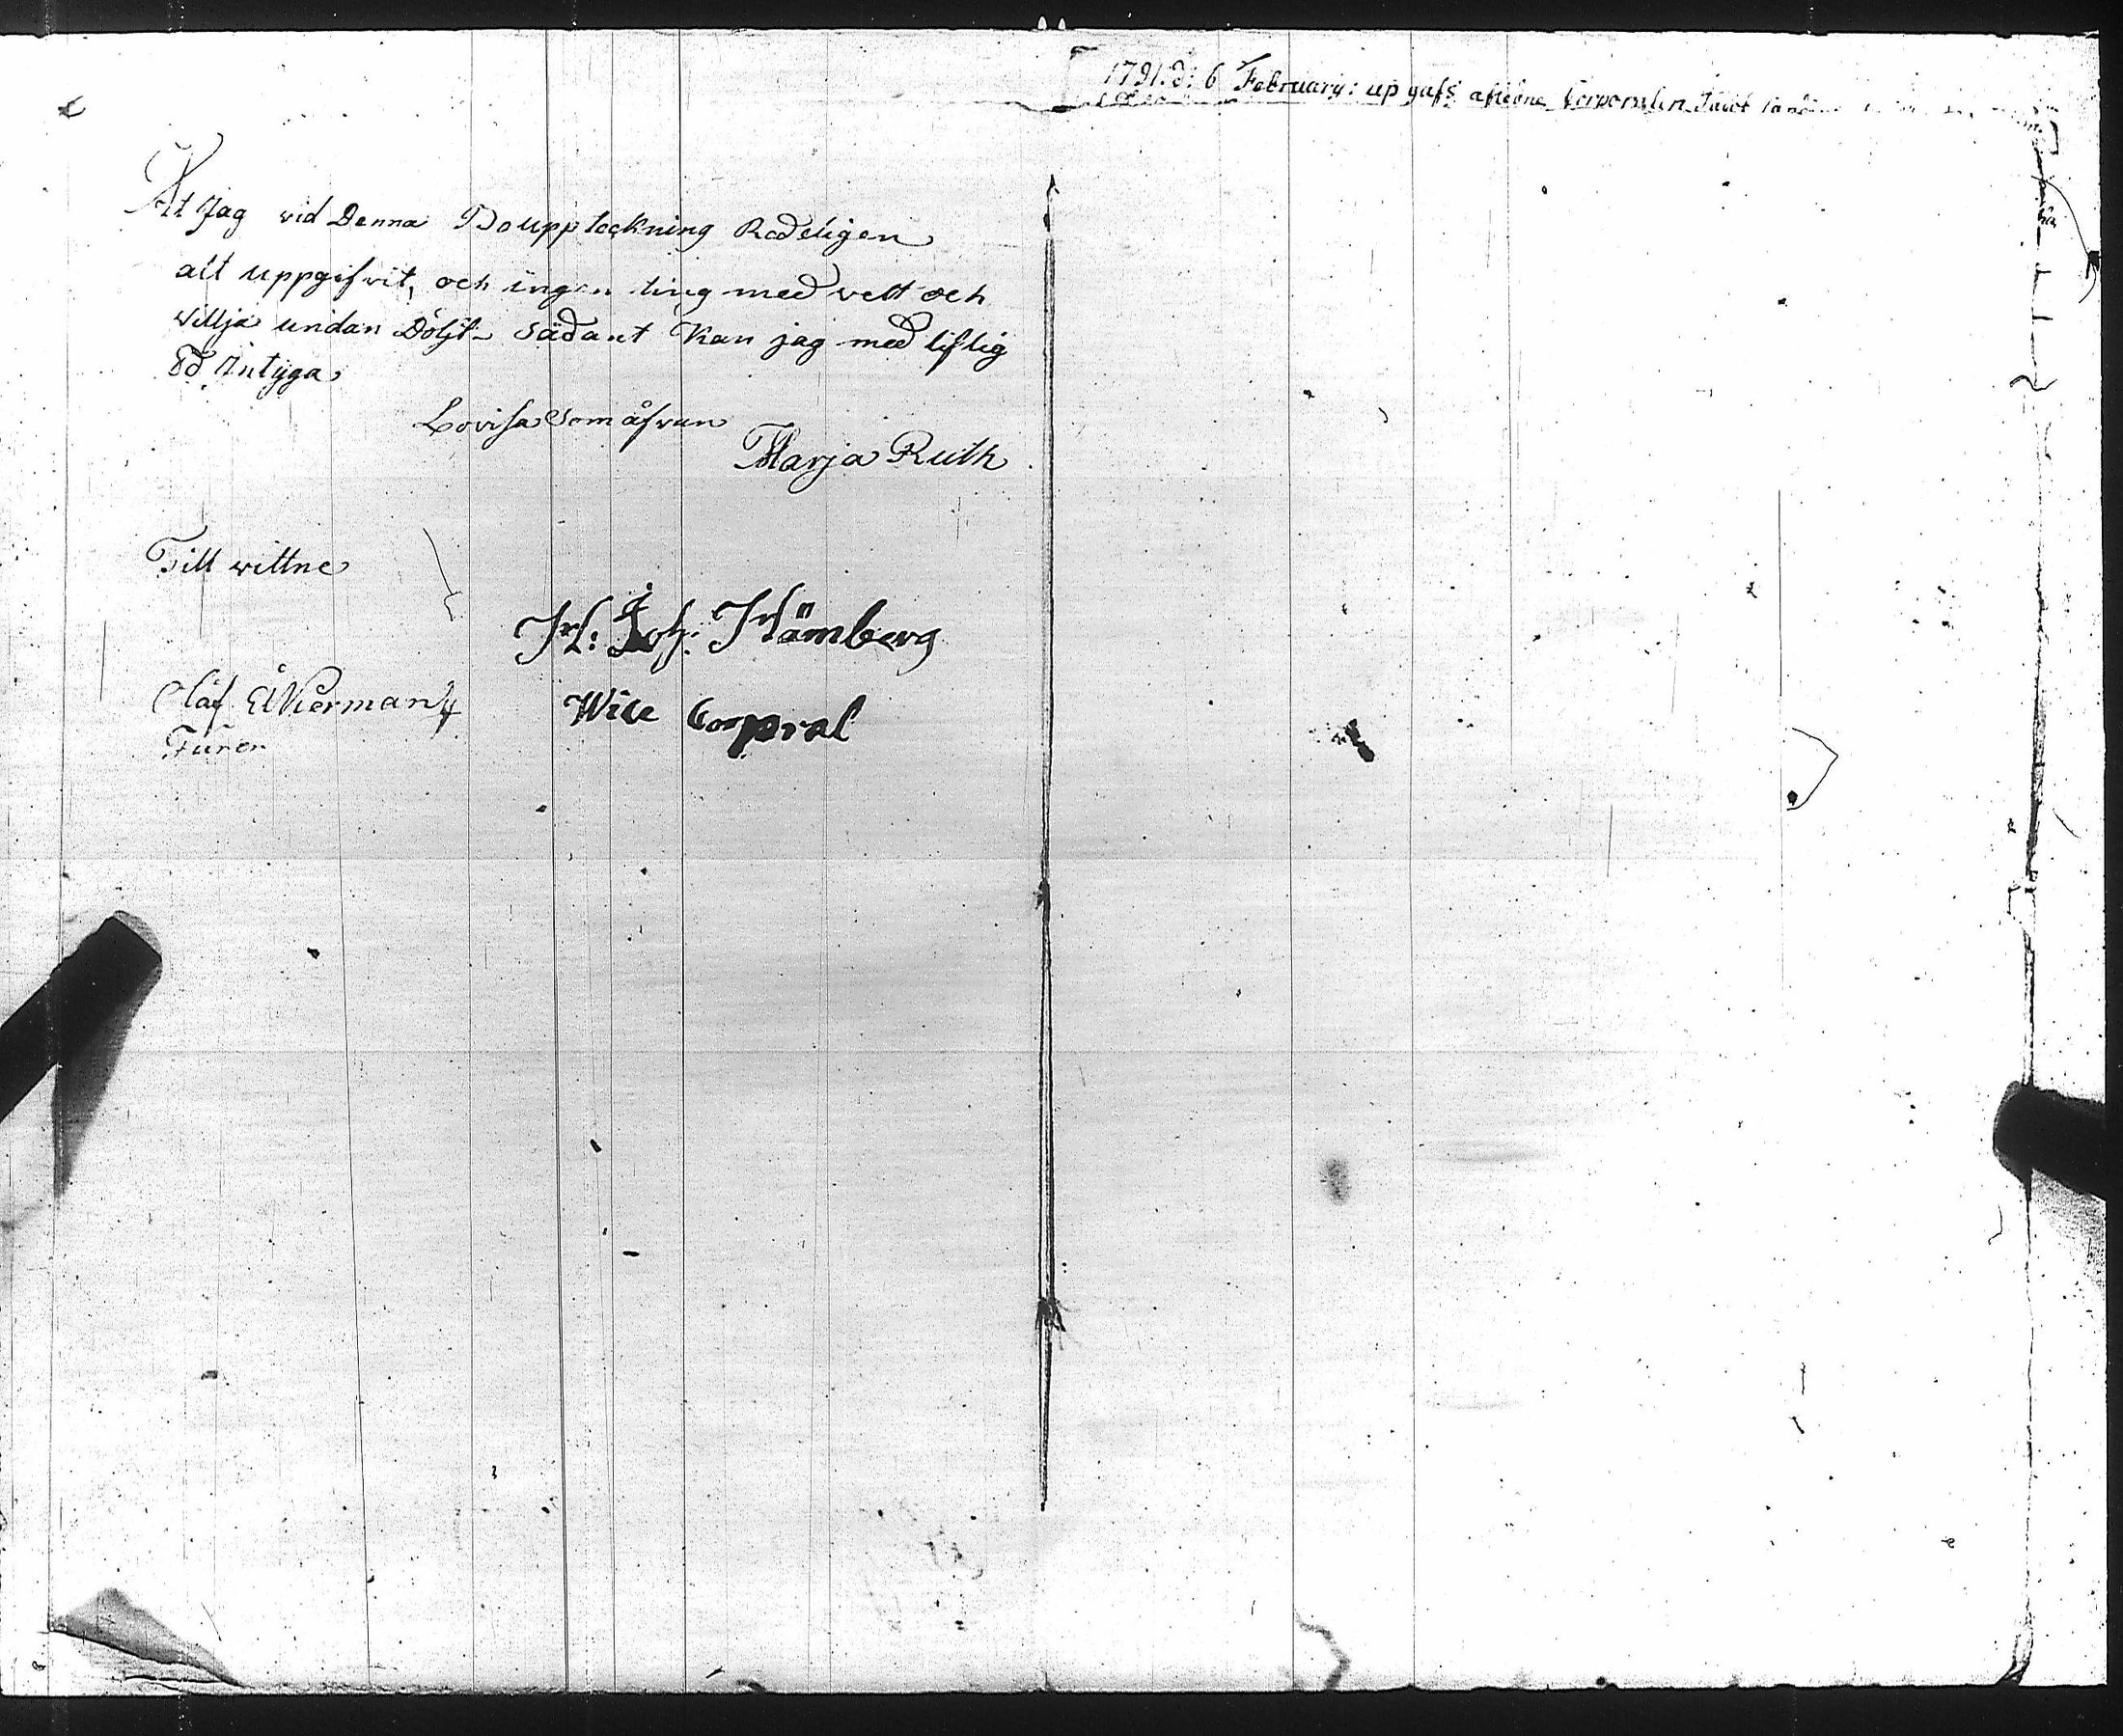 At Jag vid Denna Bouppteckning Redeligen
alt uppgifvit, och ingen ting med vett och
Villja undan Döljt. sådant Kan jag med liflig
Ed Intyga,
Lovisa som åfvan
Marja Ruth
Till vittne
Joh: Flämberg
Olaf Åkerman
Wice Corporal
Furer
1791. d: 6 February: up gafs afledne Corporalen